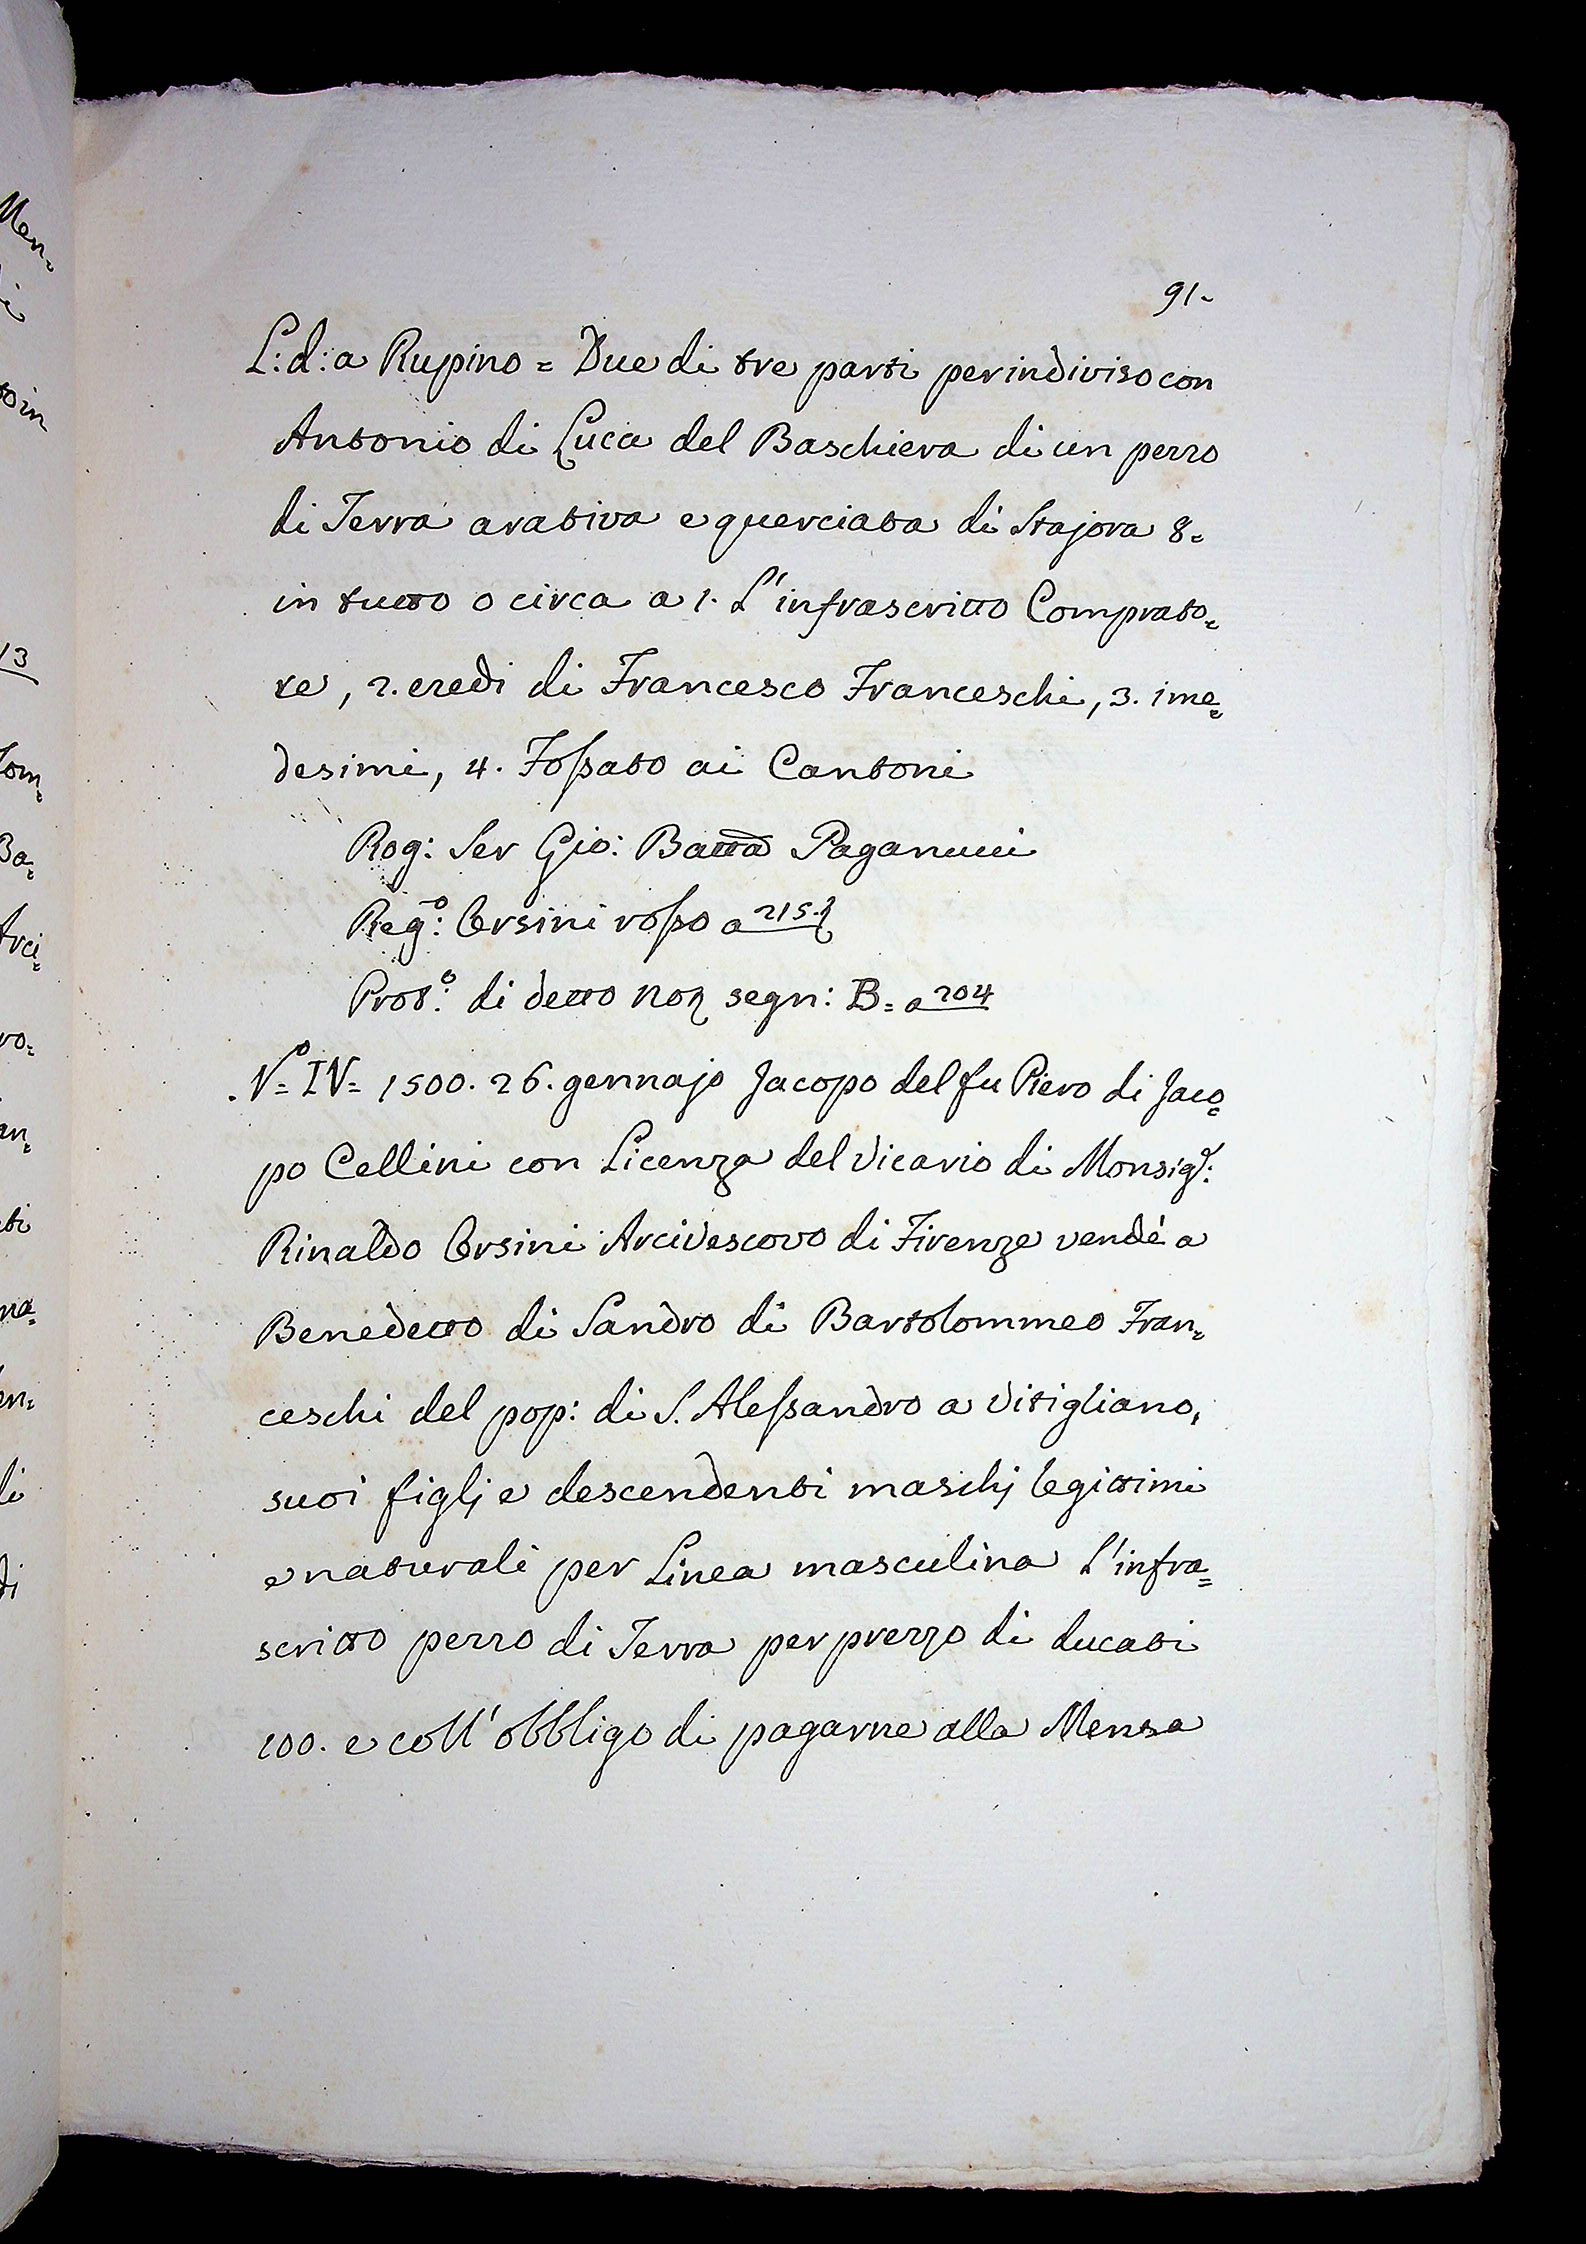 91.
L: d: a Rupino = Due di tre parti per indiviso con
Antonio di Luca del Baschiera di un pezzo
di Terra arativa e querciata di Stajora 8=
in tutto o circa a 1. L'infrascritto Comprato=
re, 2. eredi di Francesco Franceschi, 3. i me=
desimi, 4. Fossato ai Cantoni
Rog: Ser Gio: Batta Paganucci
Reg:o Orsini rosso a 215.
Prot:o di detto Not segn: B= a 204
No= IV= 1500. 26. gennajo Jacopo del fu Piero di Jaco=
po Cellini con Licenza del Vicario di Monsigr:
Rinaldo Orsini Arcivescovo di Firenze vendé a
Benedetto di Sandro di Bartolommeo Fran=
ceschi del pop: di S. Alessandro a Vitigliano,
suoi figlj e descendenti maschj legittimi
e naturali per Linea masculina L'infra=
scritto pezzo di Terra per prezzo di ducati
100. e coll'obbligo di pagarne alla Mensa
Men=
13
Tom=
Ba=
Arci=
ro=
an=
na=
en=
di